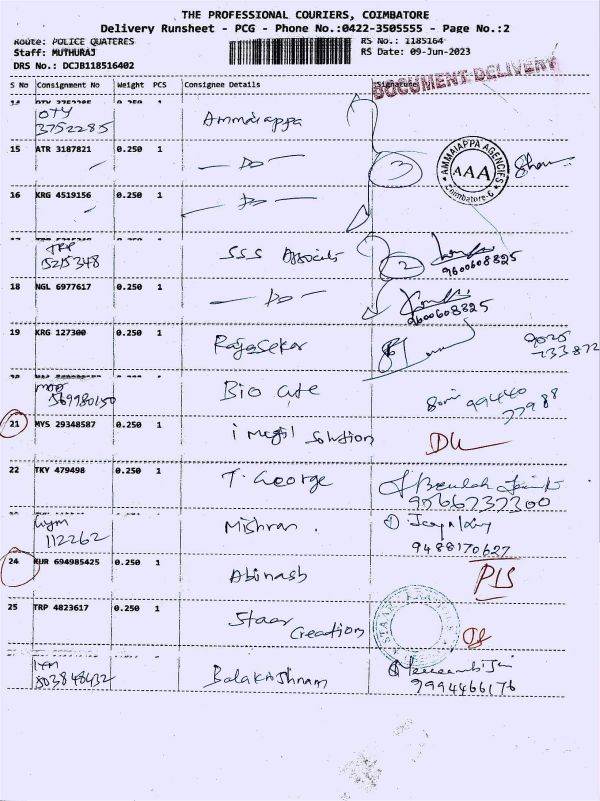 THE PROFESSIONAL COURIERS, COIMBATORE
Delivery Runsheet - PCG - Phone No.:0422-3505555 - Page No.:2
Route: POLICE QUATERES
RS No.: 1185164
Staff: MUTHURAJ
RS Date: 09-Jun-2023
DRS No.: DCJB118516402
DOCUMENT DELIVERY
S No Consignment No Weight PCS Consignee Details Signature
OTY
3752285 Ammaiappa
15 ATR 3187821 0.250 1 - Do - 3
AMMAIAPPA AGENCIES
AAA
Coimbatore-6
16 KRG 4519156 0.250 1 - Do -
TRP
5215348 SSS Associats 2
9600608825
18 NGL 6977617 0.250 1 - Do -
9600608825
19 KRG 127300 0.250 1 Rajasekar
733872
569980150 Bio care 99440
77988
21 MYS 29348587 0.250 1 Solution DL
22 TKY 479498 0.250 1 T. George
112262 Mishran.
9488170627
24 KUR 694985425 0.250 1 Abinash PIS
25 TRP 4823617 0.250 1 Staar
Creation
803848432 Balakrishnam
9994466176